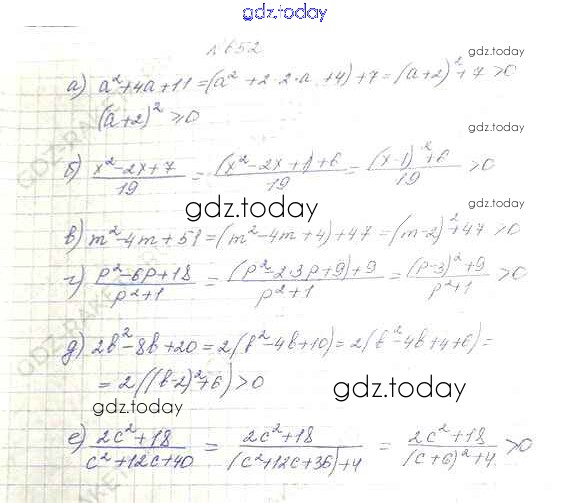 gdz.today
№652
gdz.today
а) a²+4a+11=(a²+2·2·a+4)+7=(a+2)²+7>0
(a+2)²≥0
б) x²-2x+7/19 = (x²-2x+1)+6/19 = (x-1)²+6/19 >0
gdz.today
в) m²-4m+51=(m²-4m+4)+47=(m-2)²+47>0
г) p²-6p+18/p²+1 = (p²-2·3p+9)+9/p²+1 = (p-3)²+9/p²+1 >0
д) 2b²-8b+20=2(b²-4b+10)=2(b²-4b+4+6)=
=2((b-2)²+6)>0
gdz.today
gdz.today
е) 2c²+18/c²+12c+40 = 2c²+18/(c²+12c+36)+4 = 2c²+18/(c+6)²+4 >0